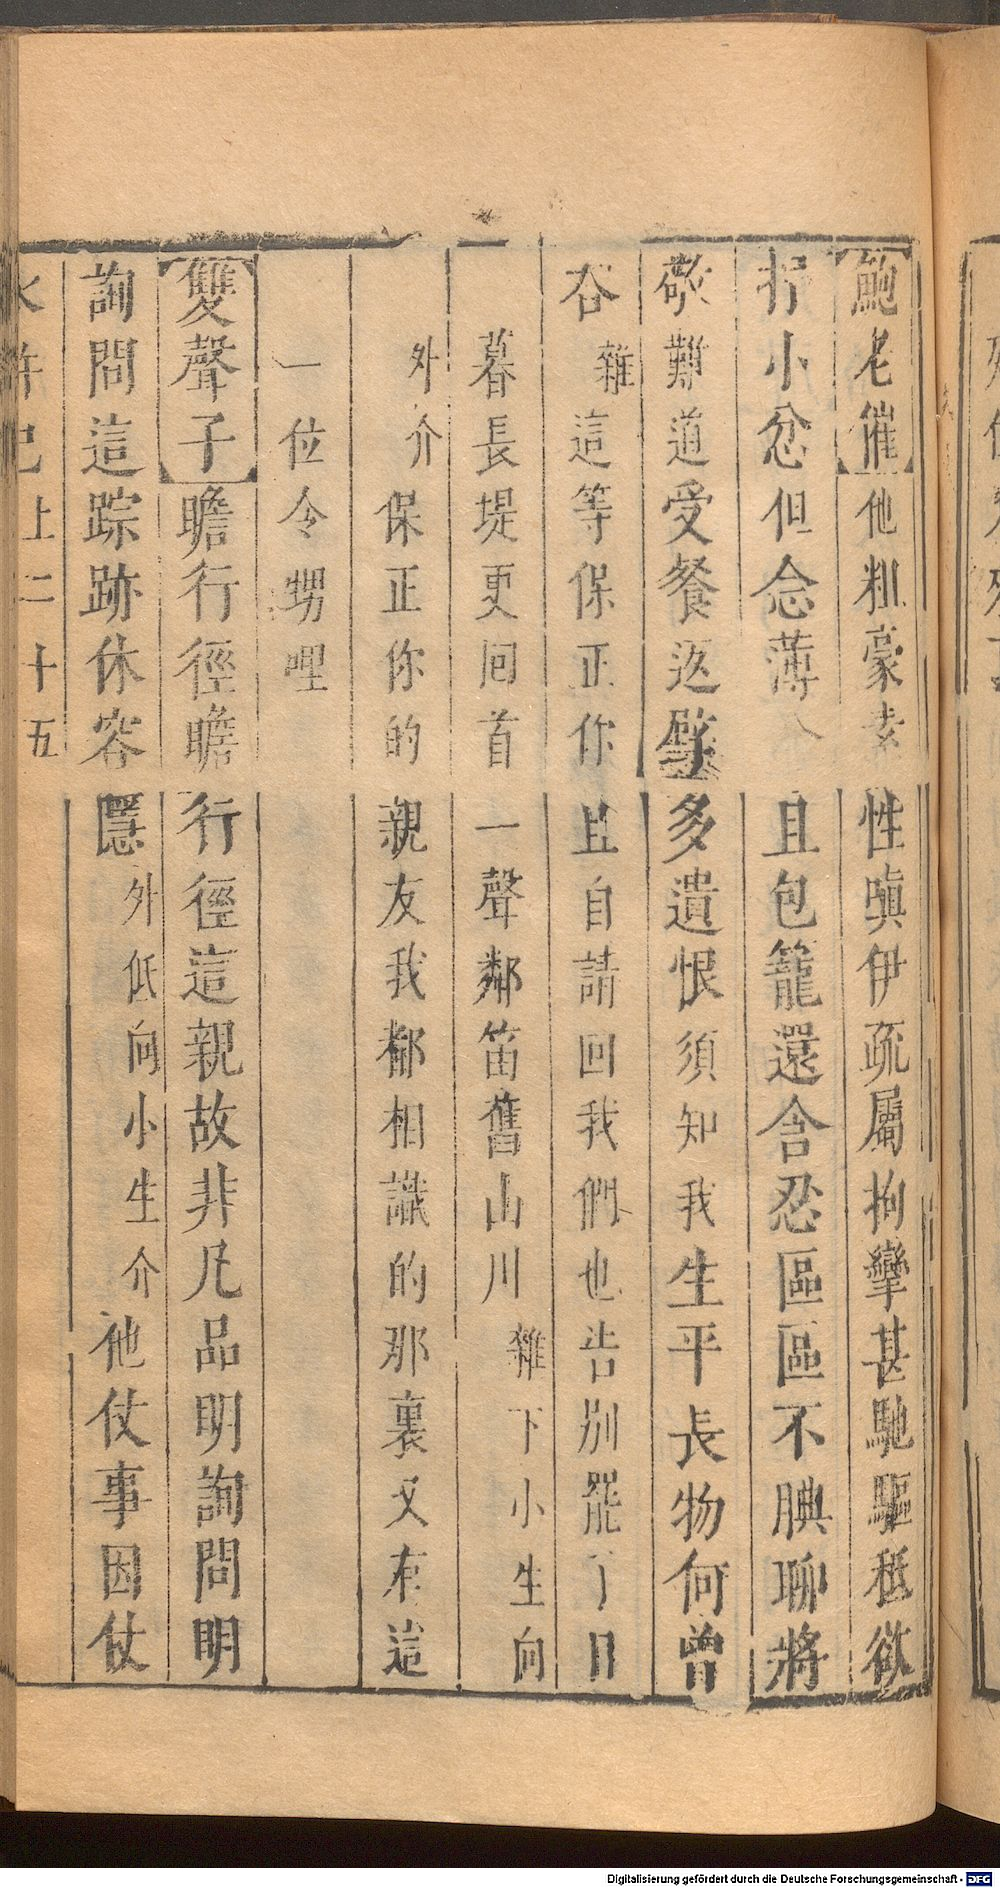 鮑老催他粗豪素性嗔伊疏屬拘攣甚馳驅秪欲
抒小忿但念薄人且包籠還含忍區區不腆聊將
敬難道受餐返璧多遺恨須知我生平長物何曾
吞雜這等保正你且自請回我們也告別罷了日
暮長堤更回首一聲鄰笛舊山川雜下小生向
外介保正你的親友我都相識的那裏又有這
一位令甥哩
雙聲子瞻行徑瞻行徑這親故非凡品明詢問明
詢問這踪跡休容隱外低向小生介他仗事因仗
水滸記上二十五
Digitalisierung gefördert durch die Deutsche Forschungsgemeinschaft - DFG